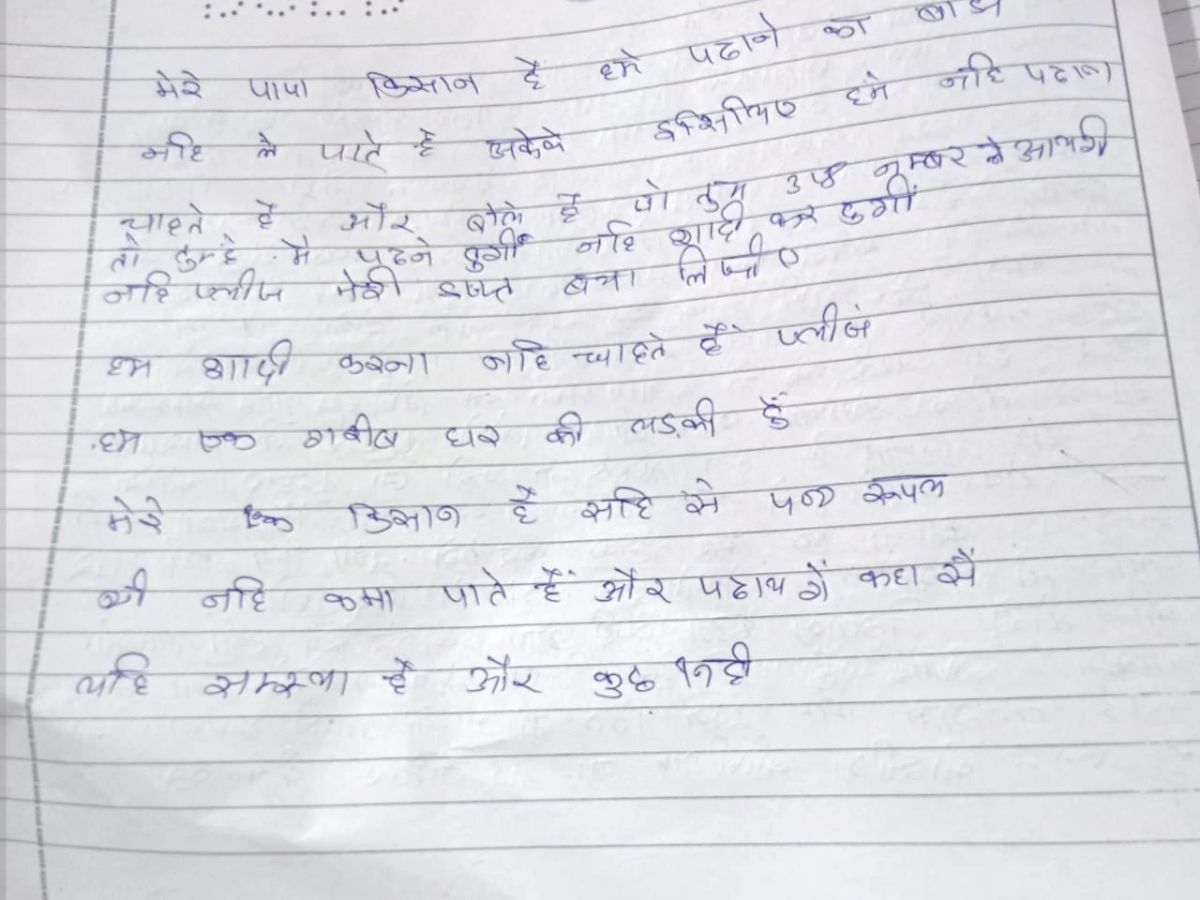 मेरे पापा किसान हैं हमे पढाने का
नहि ले पाते है अकेले इसिलिए हमे नहि पढाना
चाहते हैं और बोले है जो तुम नम्बर ले आयगी
तो तुम्हे मै पढने दुगीं नहि शादी कर दुगीं
नहि प्लीज मेरी इज्जत बचा लिजीए
हम शादी करना नहि चाहते हैं प्लीजं
हम एक गरीब घर की लड़की हैं
मेरे किसान है सहि से रूपल
भी नहि कमा पाते हैं और पढायगें कहा सें
यहि समस्या है और कुछ नही